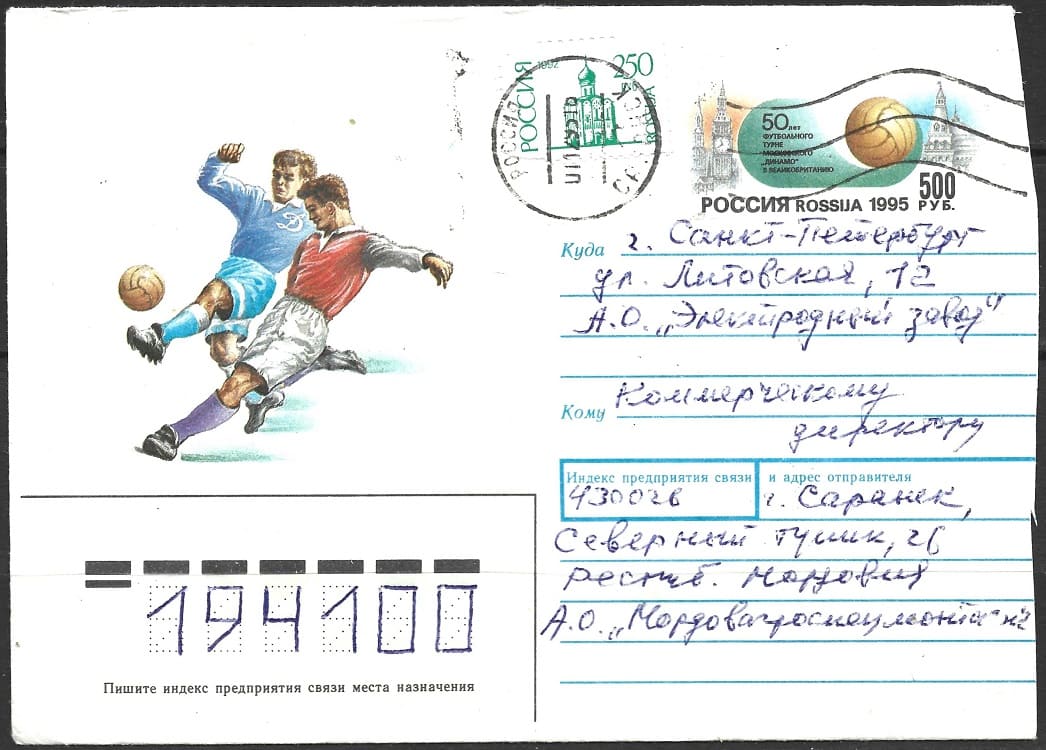 РОССИЯ
1992
250
РОССИЯ
САРАНСК
50 лет
ФУТБОЛЬНОГО
ТУРНЕ
МОСКОВСКОГО
„ДИНАМО"
В ВЕЛИКОБРИТАНИЮ
500
РОССИЯ ROSSIJA 1995 РУБ.
Д
Куда г. Санкт-Петербург
ул. Литовская, 12
А.О. „Электродный завод"
Кому Коммерческому
директору
Индекс предприятия связи и адрес отправителя
430026 г. Саранск,
Северный тупик, 26
Респуб. Мордовия
А.О. „Мордовагроспецмонтаж"
194100
Пишите индекс предприятия связи места назначения